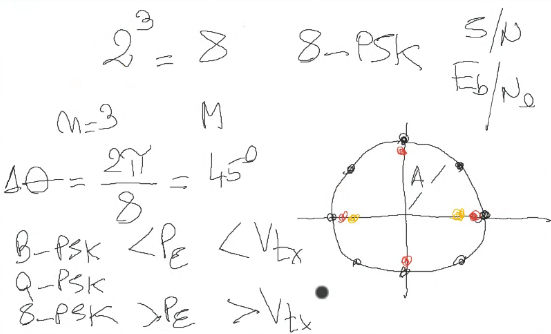 2³ = 8 8-PSK S/N
Eb/No
n=3 M
Δθ = 2π/8 = 45°
A
B-PSK <PE <Vtx
Q-PSK
8-PSK >PE >Vtx